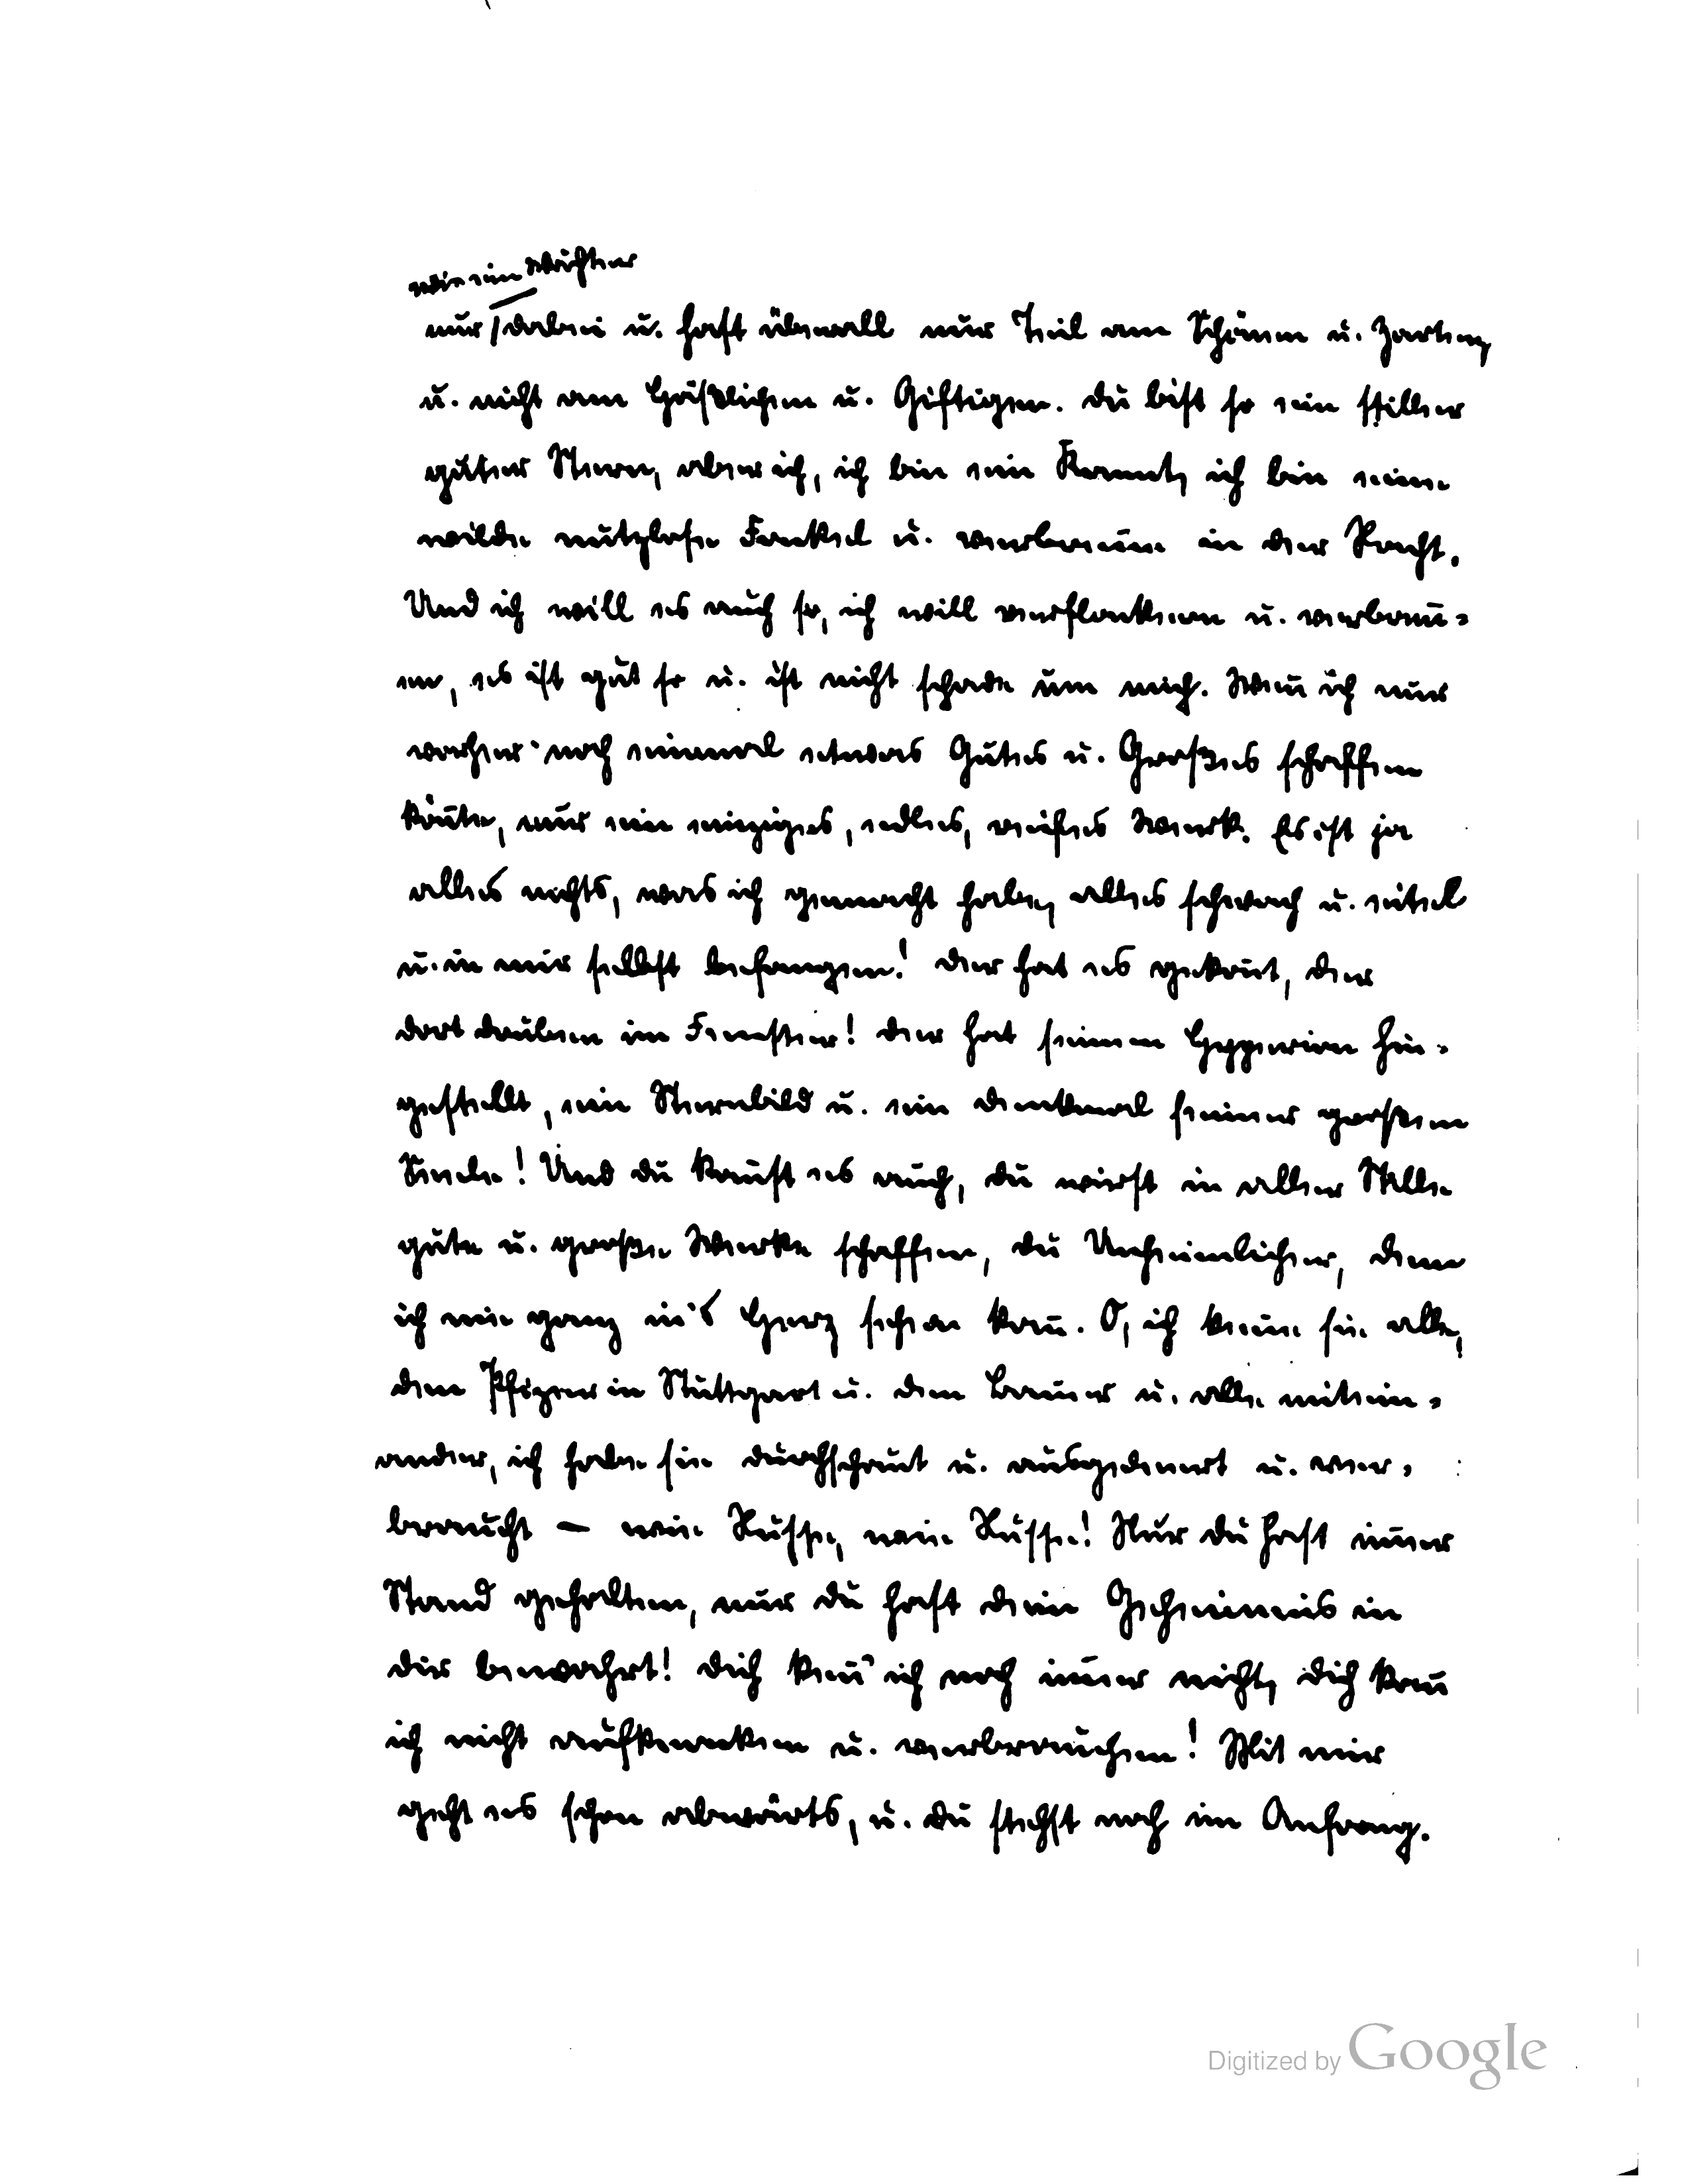 wie ein Wächter
nur / dabei u. hast überall nur Teil am Schönen u. Zarten,
u. nicht am Häßlichen u. Giftigen. Du bist so ein stiller
guter Stern, aber ich, ich bin ein Komet, ich bin eine
wilde nutzlose Fackel u. verbrenne in der Nacht.
Und ich will es auch so, ich will verflackern u. verbren̄=
en, es ist gut so u. ist nicht schade um mich. Wen̄ ich nur
vorher noch einmal etwas Gutes u. Großes schaffen
kön̄te, nur ein einziges, edles, reifes Werk. Es ist ja
alles nichts, was ich gemacht habe, alles schwach u. eitel
u. in mir selbst befangen! Der hat es gekon̄t, der
dort drüben im Fenster! Der hat seinen Hyperion hin=
gestellt, ein Sternbild u. ein Denkmal seiner großen
Seele! Und du kan̄st es auch, du wirst in aller Stille
gute u. große Werke schaffen, du Unheimlicher, dem
ich nie ganz in's Herz sehen kan̄. O, ich kenne sie alle,
den Pfizer in Stuttgart u. den Bauer u. alle mitein=
ander, ich habe sie durchschaut u. ausgedient u. ver=
braucht – wie Nüsse, wie Nüsse! Nur du hast im̄er
Stand gehalten, nur du hast dein Geheimnis in
dir bewahrt! Dich ken̄' ich noch im̄er nicht, dich kan̄
ich nicht aufknacken u. verbrauchen! Mit mir
geht es schon abwärts, u. du stehst noch im Anfang.
Digitized by Google